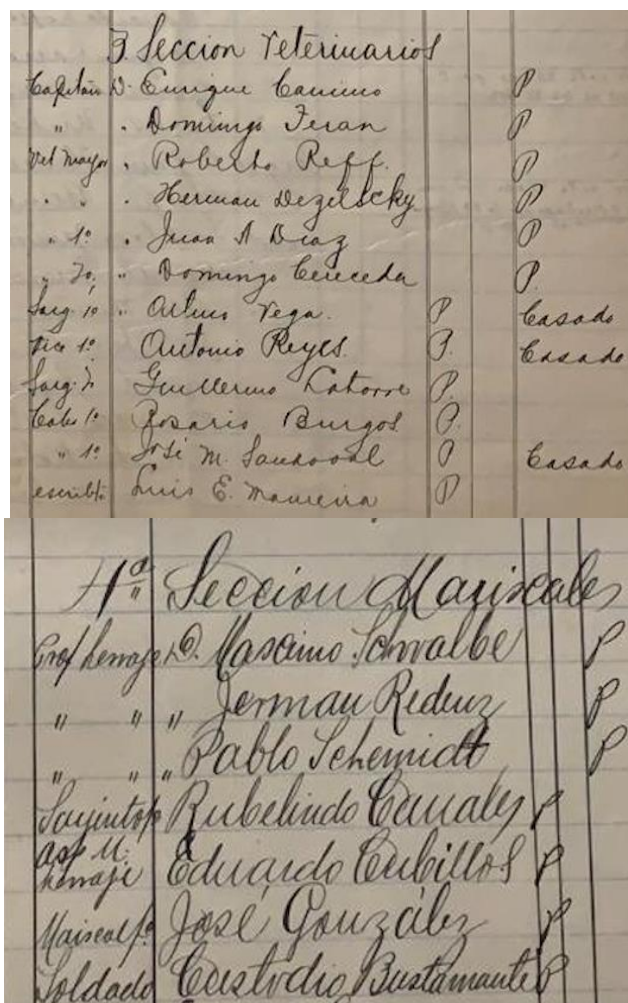 3. Seccion Veterinarios
Capitán D. Enrique Camino P
" . Domingo Teran P
Vet Mayor . Roberto Reff. P
" . . Herman Dezelscky P
" 1º . Juan A Diaz P
" 2º, " Domingo Cereceda P.
Sarg. 1º " Arturo Vega. P Casado
Vice 1º Antonio Reyes. P. Casado
Sarg. 2º Guillermo Latorre P.
Cabo 1º Rosario Burgos P.
" 1º José M. Sandoval P Casado
escribte Luis E. Maureira P
4ª Seccion Mariscales
Prof herraje D. Mascimo Schwalbe P
" " " Jerman Redenz P
" " " Pablo Schemidt P
Sarjinto Rubelindo Canales P
asp M.
herraje Eduardo Cubillos P
Mariscal José González P
Soldado Custodio Bustamante P